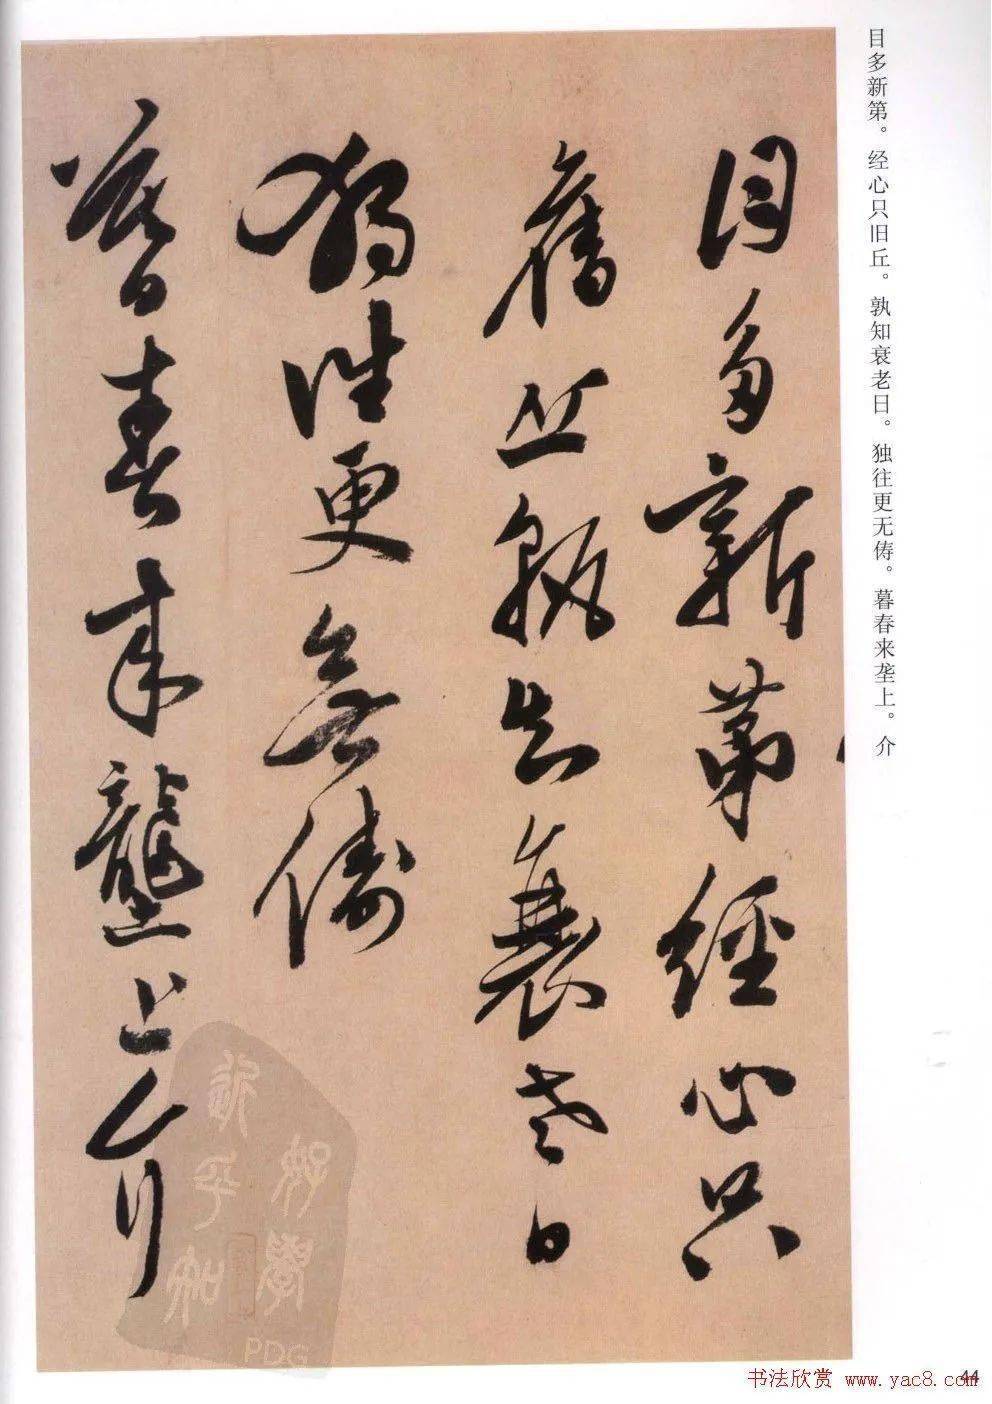 目多新第。经心只旧丘。孰知衰老日。独往更无俦。暮春来垄上。介
目多新第經心只
舊丘孰知衰老日
獨往更無儔
暮春来壟上介
好學
近乎知
PDG
书法欣赏 www.yac8.com
44